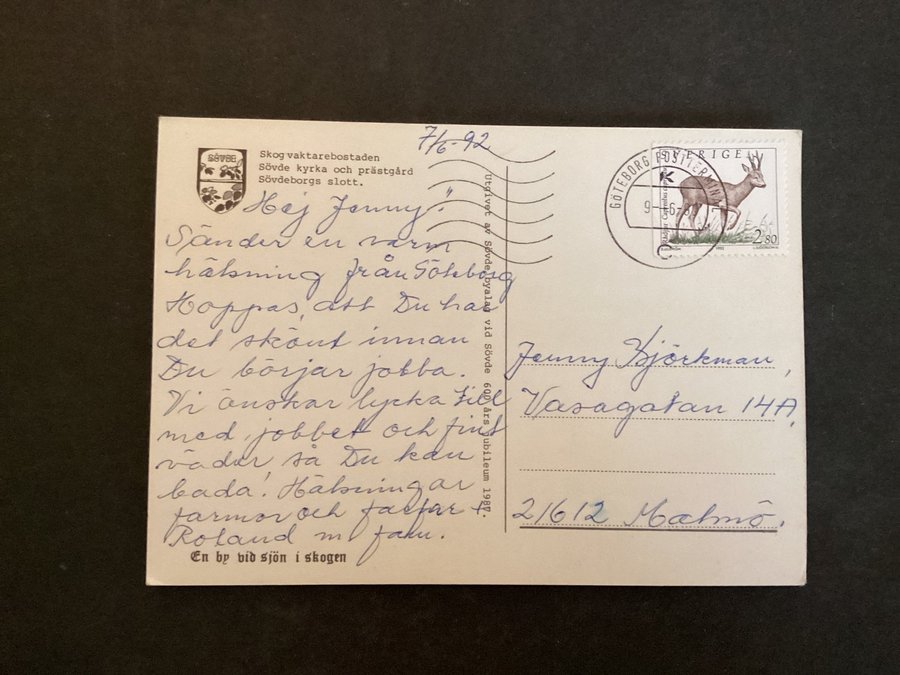 7/6-92
SÖVDE
Skogvaktarebostaden
Sövde kyrka och prästgård
Sövdeborgs slott.
Hej Jenny!
Sänder en varm
hälsning från Göteborg
Hoppas, att Du har
det skönt innan
Du börjar jobba.
Vi önskar lycka till
med jobbet och fint
väder, så Du kan
bada! Hälsningar
farmor och farfar +
Roland m fam.
En by vid sjön i skogen
Utgivet av Sövde byalag vid Sövde 600 års jubileum 1987.
GÖTEBORG POSTTERMINAL
9-6
SVERIGE
2.80
Jenny Björkman,
Vasagatan 14A,
21612 Malmö.